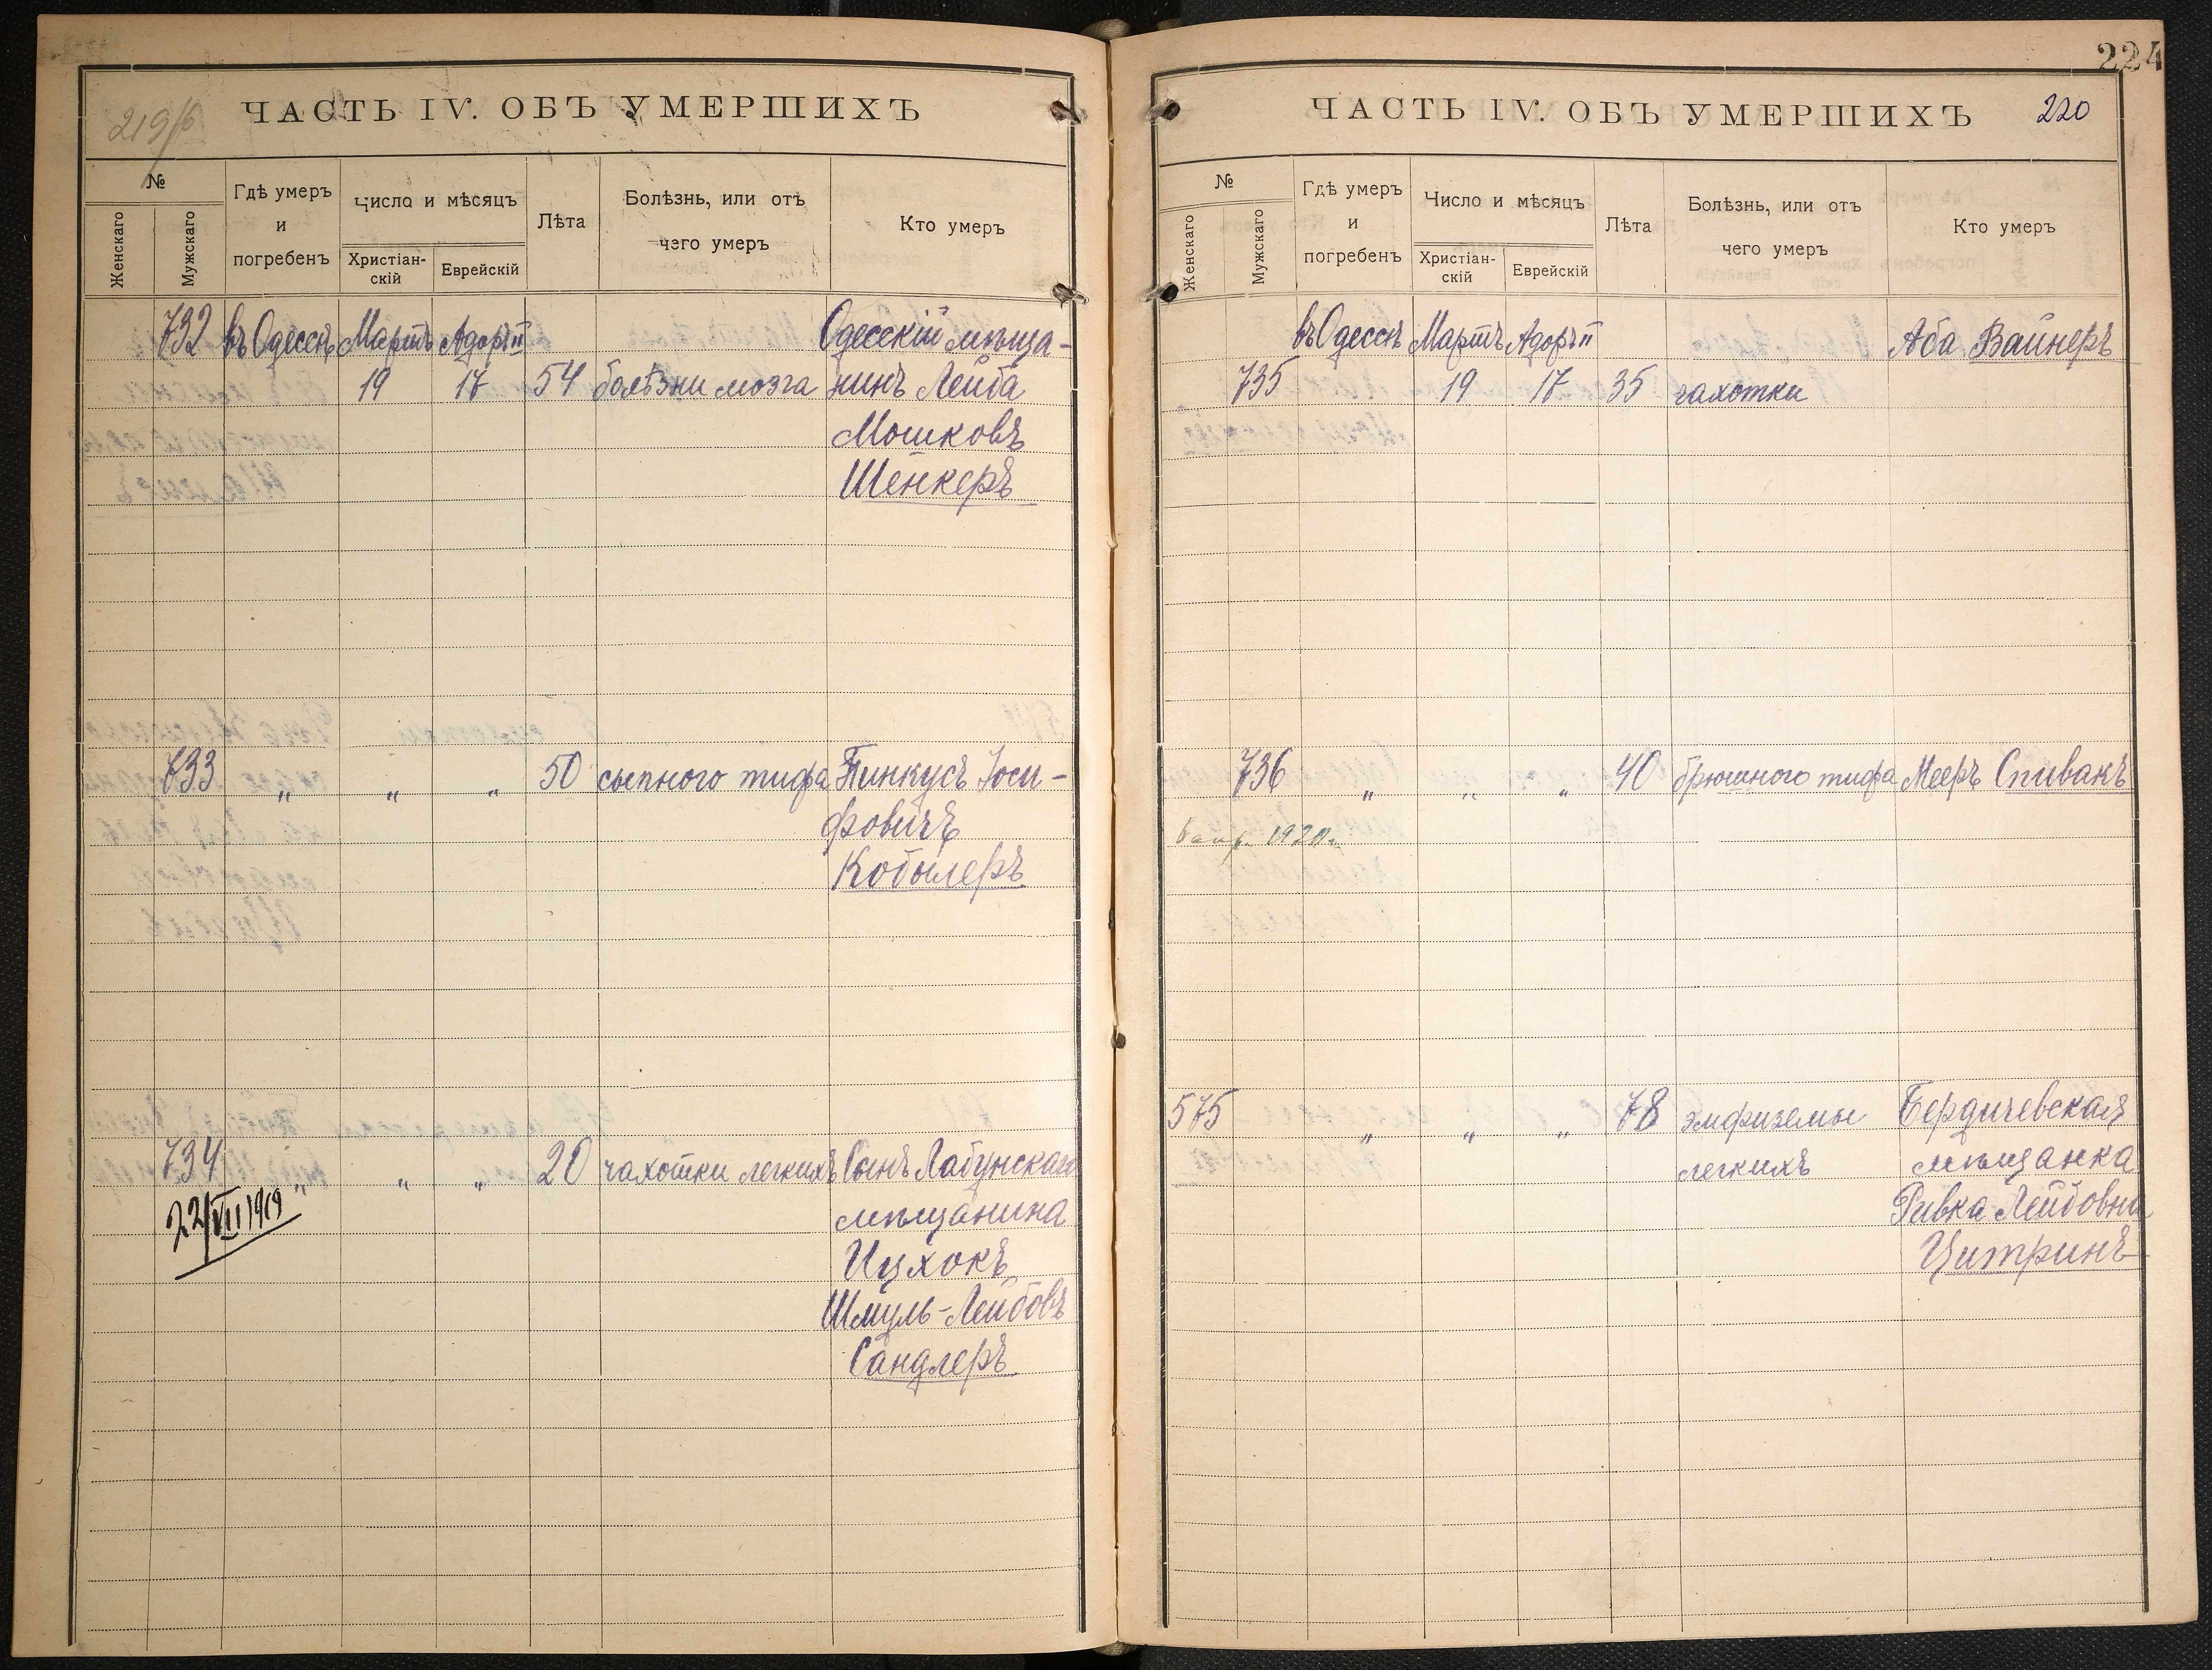 219/б
ЧАСТЬ IV. ОБЪ УМЕРШИХЪ
№
Женскаго
Мужскаго
Гдѣ умеръ и погребенъ
Число и мѣсяцъ
Христіан-скій
Еврейскій
Лѣта
Болѣзнь, или отъ чего умеръ
Кто умеръ
732 въ Одессѣ Мартъ Адоръ II Одесскій мѣща-
19 17 54 болѣзни мозга нинъ Лейба
Мошковъ
Шенкеръ
733 " " " 50 сыпного тифа Пинкусъ Іоси-
фовичъ
Кобылеръ
734 " " " 20 чахотки легкихъ Сынъ Лабунскаго
22/VII 1919 мѣщанина
Ицхокъ
Шмуль-Лейбовъ
Сандлеръ
224
ЧАСТЬ IV. ОБЪ УМЕРШИХЪ
220
№
Женскаго
Мужскаго
Гдѣ умеръ и погребенъ
Число и мѣсяцъ
Христіан-скій
Еврейскій
Лѣта
Болѣзнь, или отъ чего умеръ
Кто умеръ
въ Одессѣ Мартъ Адоръ II Аба Вайнеръ
735 19 17 35 чахотки
736 " " " 40 брюшного тифа Мееръ Спивакъ
6 апр. 1920 г.
575 " " " 78 эмфиземы Бердичевская
легкихъ мѣщанка
Ривка Лейбовна
Цитринъ